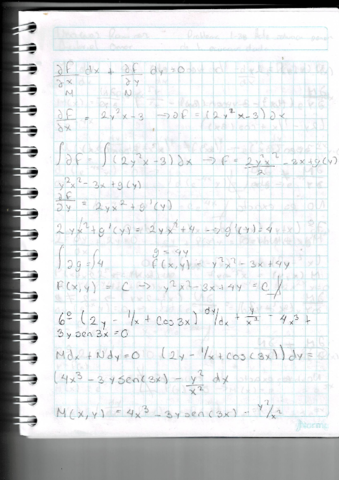 ∂F/∂x dx + ∂F/∂y dy = 0
M N
∂F/∂x = 2y²x - 3 → ∂F = (2y²x - 3) ∂x
∫∂F = ∫(2y²x - 3) ∂x → F = 2y²x²/2 - 3x + g(y)
y²x² - 3x + g(y)
∂F/∂y = 2yx² + g'(y)
2yx² + g'(y) = 2yx² + 4 → g'(y) = 4
∫∂g = ∫4 g = 4y
f(x,y) = y²x² - 3x + 4y
F(x,y) = C → y²x² - 3x + 4y = C //
6º (2y - 1/x + cos 3x) dy/dx + y/x² - 4x³ +
3y sen 3x = 0
Mdx + Ndy = 0 (2y - 1/x + cos(3x)) dy =
(4x³ - 3y sen(3x) - y²/x² dx
M(x,y) = 4x³ - 3y sen(3x) - y²/x²